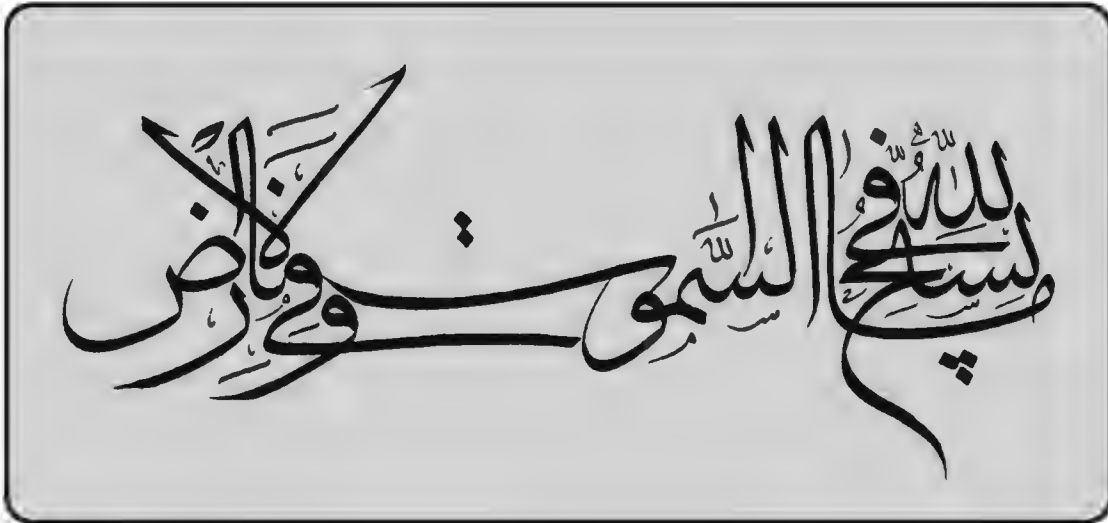 يسبح لله ما في السموت وما في الأرض